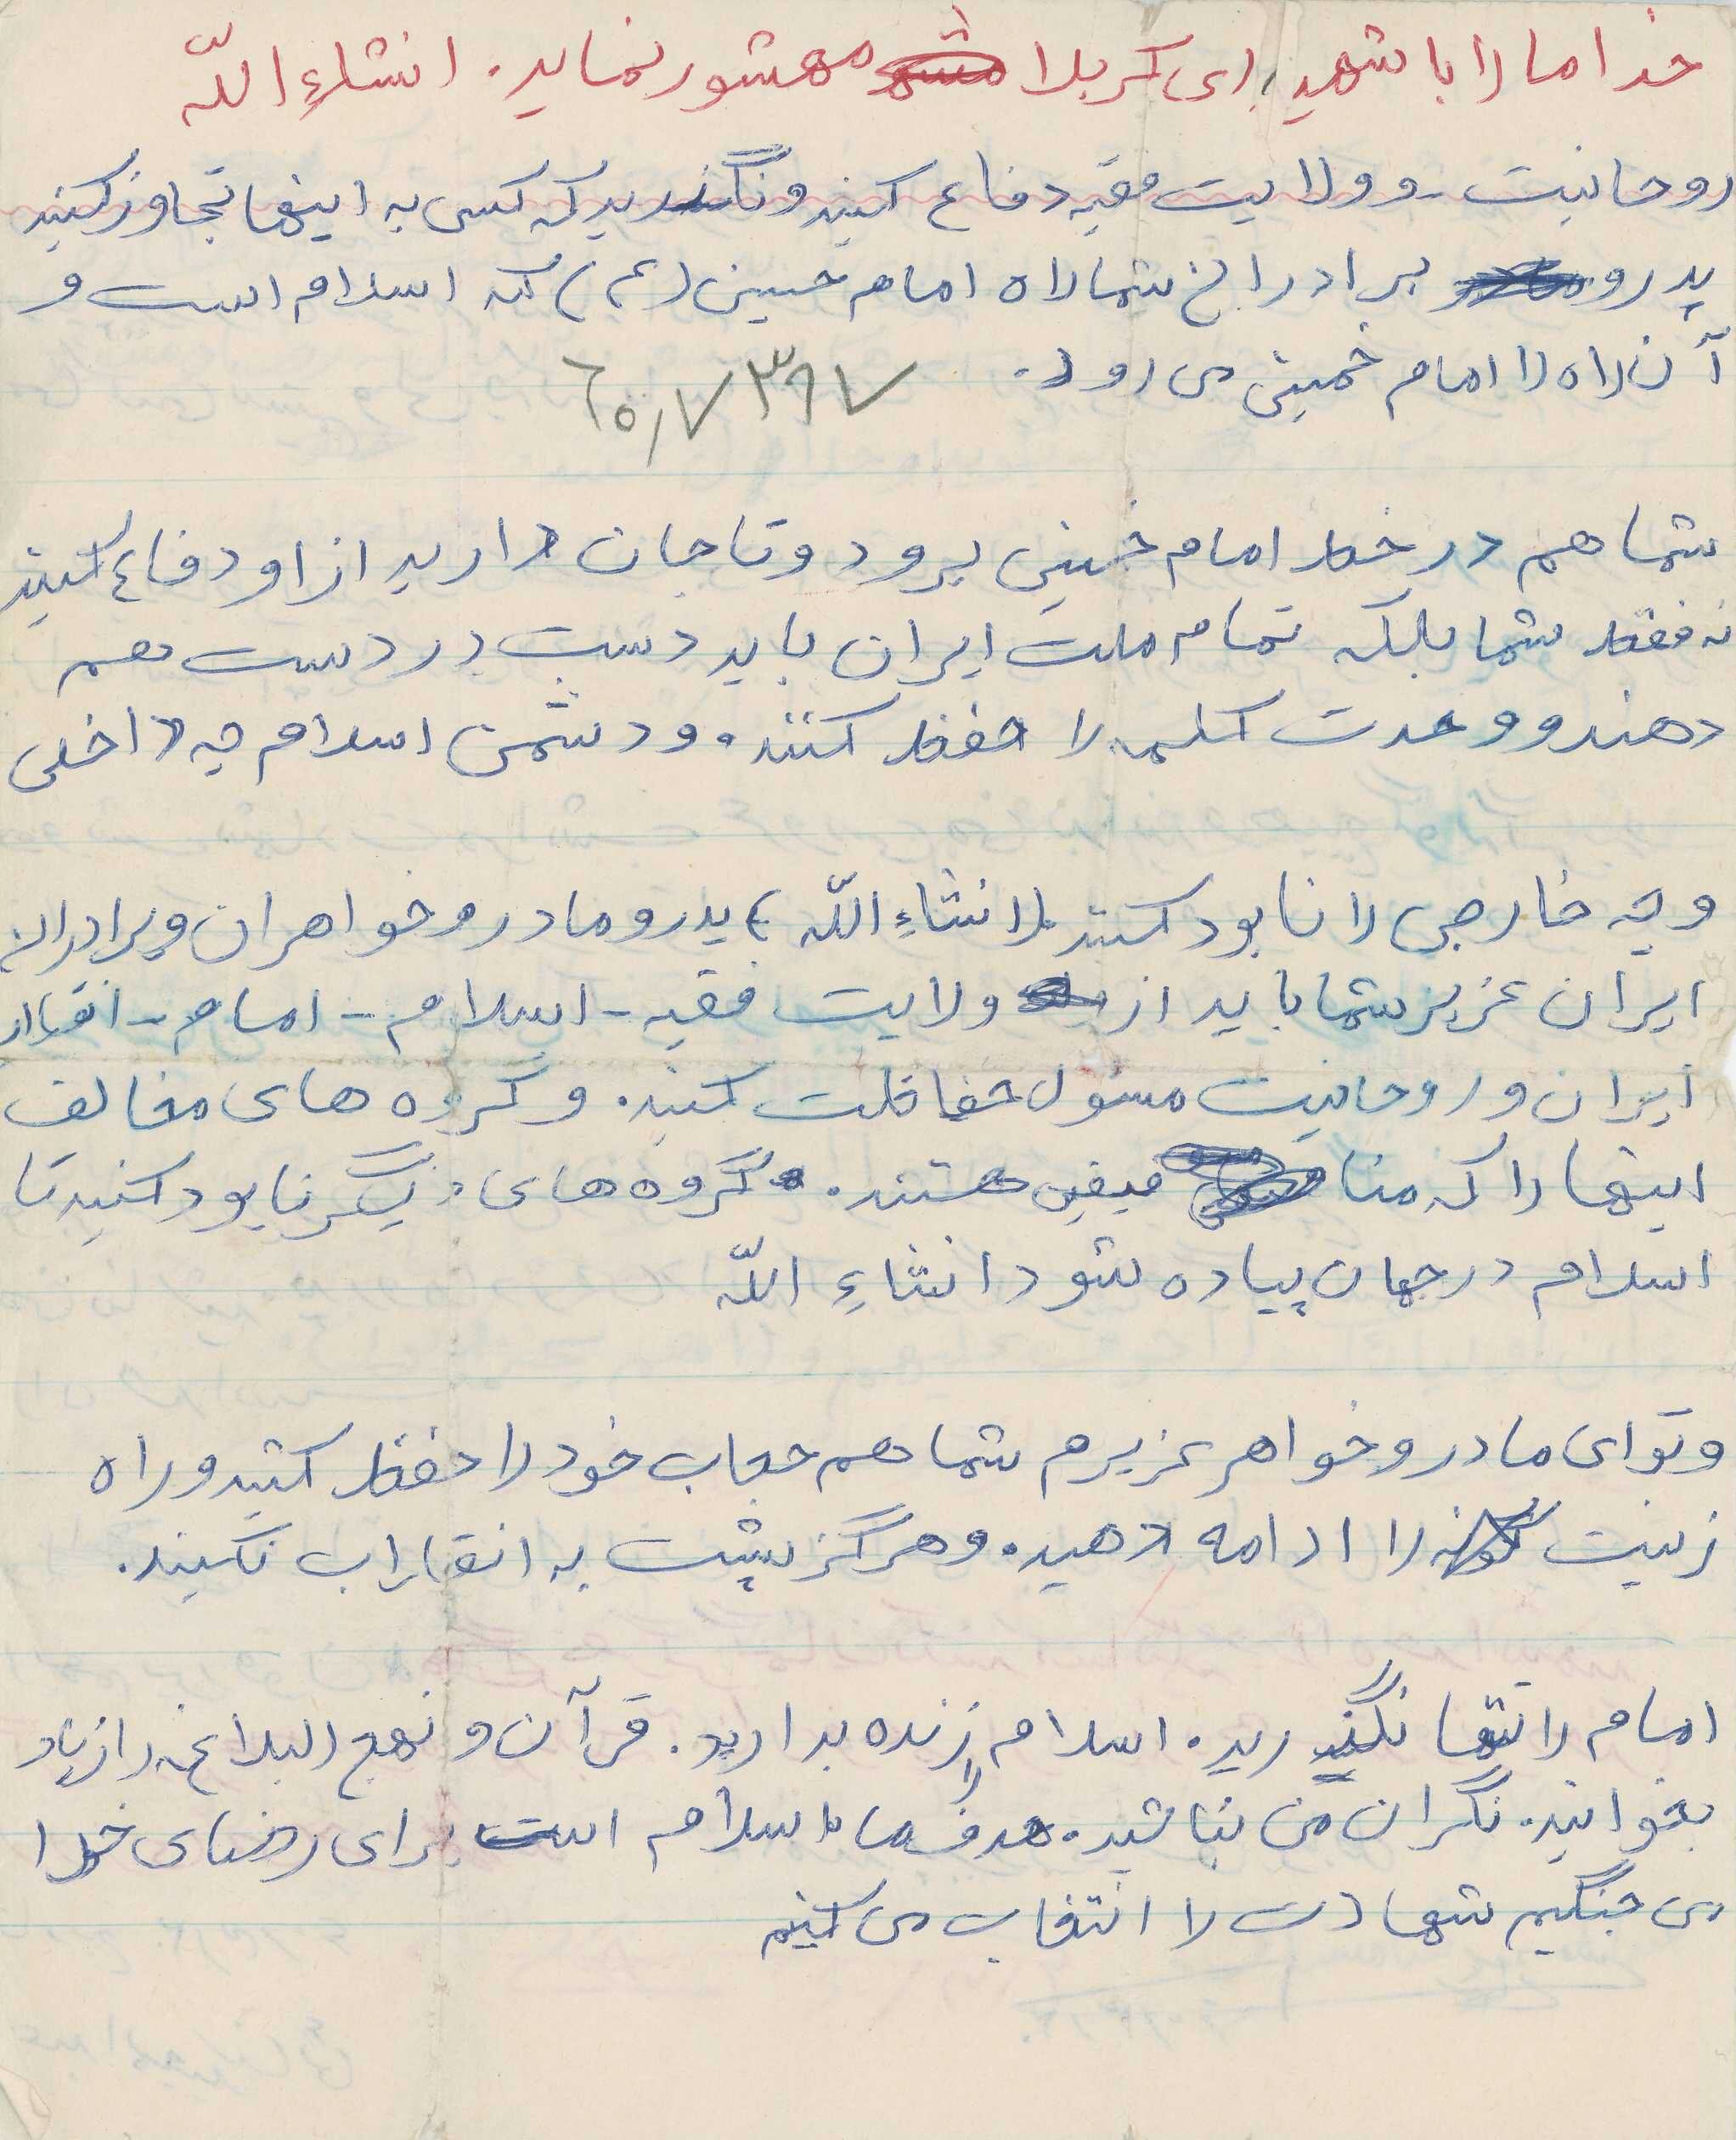 خدا ما را با شهید های کربلا مهشور نماید. انشاءِ اللّه
روحانیت - و ولایت فقیه دفاع کنید و نگذارید که کسی به اینها تجاوز کنید
پدر و برادرانِ شما راه امام حسین (ع) که اسلام است و
آن راه را امام خمینی می رود.
۶۵۱۷۳۹۷
شما هم در خط امام خمینی برود و تا جان دارید از او دفاع کنید
نه فقط شما بلکه تمام ملت ایران باید دست در دست هم
دهند و وحدت کلمه را حفظ کنند. و دشمن اسلام چه داخلی
و چه خارجی را نابود کنند (انشاءِ اللّه) پدر و مادر و خواهران و برادران
ایران عزیز شما باید از ولایت فقیه - اسلام - امام - انقلاب
ایران و روحانیت مسول حفاظت کنید. و گروه های مخالف
اینها را که منا فیقین هستند. گروه های دیگر نابود کنید تا
اسلام در جهان پیاده شود انشاءِ اللّه
و تو ای مادر و خواهر عزیزم شما هم حجاب خود را حفظ کنید و راه
زنیت را ادامه دهید. و هرگز پشت به انقلاب نکیند.
امام را تنها نگذارید. اسلام را زنده بدارید. قرآن و نهج البلاغه را زیاد
بخوانید. نگران من نباشید. هدف ما اسلام است برای رضای خدا
می جنگیم شهادت را انتخاب می کنیم